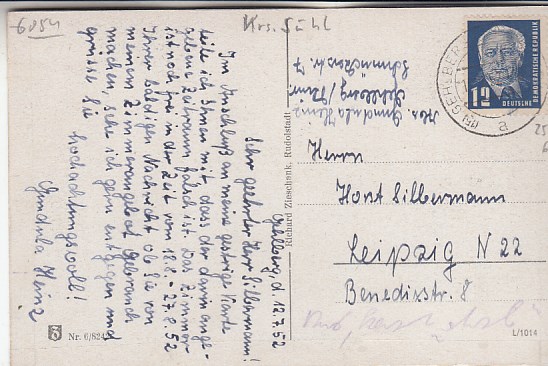 6054
Krs. Suhl
Gehlberg, d. 12.7.52
Sehr geehrter Herr Silbermann!
Im Anschluß an meine gestrige Karte
teile ich Ihnen mit, dass der darin ange-
gebene Zeitraum falsch ist. Das Zimmer
ist noch frei in der Zeit vom 18.8. - 27.8.52
Ihrer baldigen Nachricht ob Sie von
meinem Zimmerangebot Gebrauch
machen, sehe ich gern entgegen und
grüsse Sie
hochachtungsvoll!
Gundula Heinz
Nr. 6/824
Richard Zieschank, Rudolstadt
Abs. Gundula Heinz
Gehlberg/Thür.
7
GEHLBERG
a
12
DEUTSCHE
DEMOKRATISCHE REPUBLIK
Herrn
Horst Silbermann
Leipzig N 22
Benedixstr. 8
L/1014